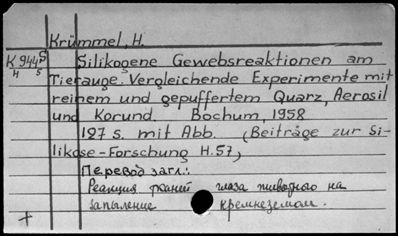 Krümmel, H.
K 9445
4 5
Silikogene Gewebsreaktionen am
Tierauge. Vergleichende Experimente mit
reinem und gepuffertem Quarz, Aerosil
und Korund. Bochum, 1958
127 s. mit Abb. (Beiträge zur Si-
likose-Forschung H.57)
Перевод загл.:
Реакция тканей глаза животного на
запыление кремнеземом.
+